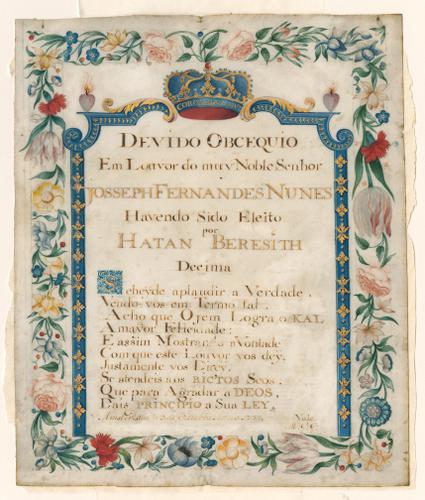 DEVIDO OBCEQUIO
Em Louvor do muy Noble Senhor
JOSSEPH FERNANDES NUNES
Havendo Sido Eleito
por
HATAN BERESITH
Decima
Se hevde aplaudir a Verdade,
Vendo vos em Termo tal
Acho que Orem Logra o KAL
A mayor Felicidade:
E assim Mostrando a vontade
Com que este Louvor vos dey,
Justamente vos Direy,
Se atendeis aos RICTOS Seos,
Que para Agradar a DEOS,
Dais PRINCIPIO a Sua LEY